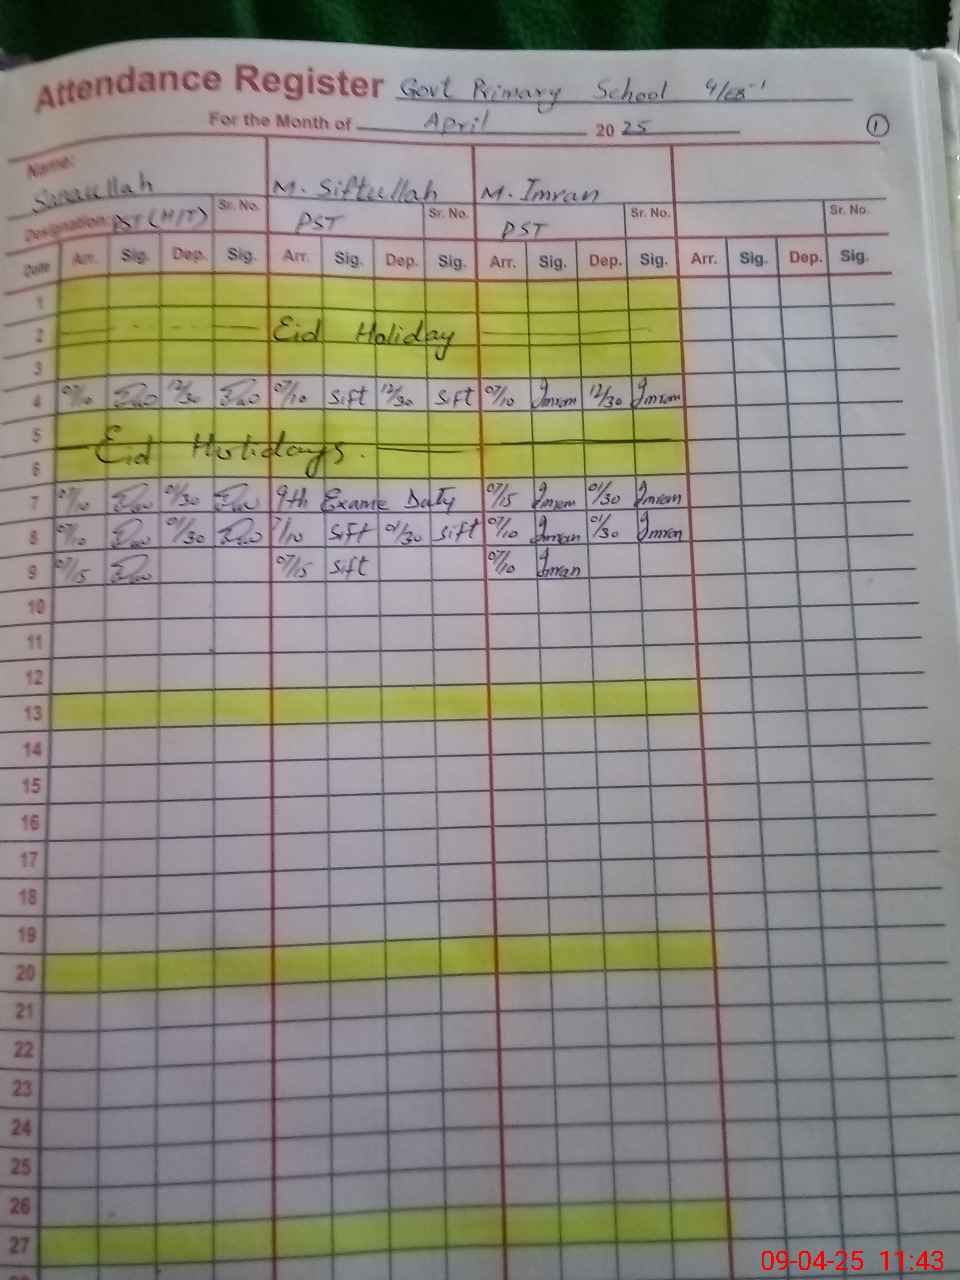 Attendance Register Govt Primary School
For the Month of April 2025
1
Name: Sanaullah M. Siftullah M. Imran
Designation: PST (H/T) Sr. No. PST Sr. No. PST Sr. No. Sr. No.
Date Arr. Sig. Dep. Sig. Arr. Sig. Dep. Sig. Arr. Sig. Dep. Sig. Arr. Sig. Dep. Sig.
1
2 Eid Holiday
3
4 07/10 12/30 07/10 Sift 12/30 Sift 07/10 Imran 12/30 Imran
5 Eid Holidays.
6
7 07/10 01/30 9th Exame Duty 07/15 Imran 01/30 Imran
8 07/10 01/30 7/10 Sift 01/30 Sift 07/10 Imran 01/30 Imran
9 07/15 07/15 Sift 07/10 Imran
10
11
12
13
14
15
16
17
18
19
20
21
22
23
24
25
26
27
09-04-25 11:43